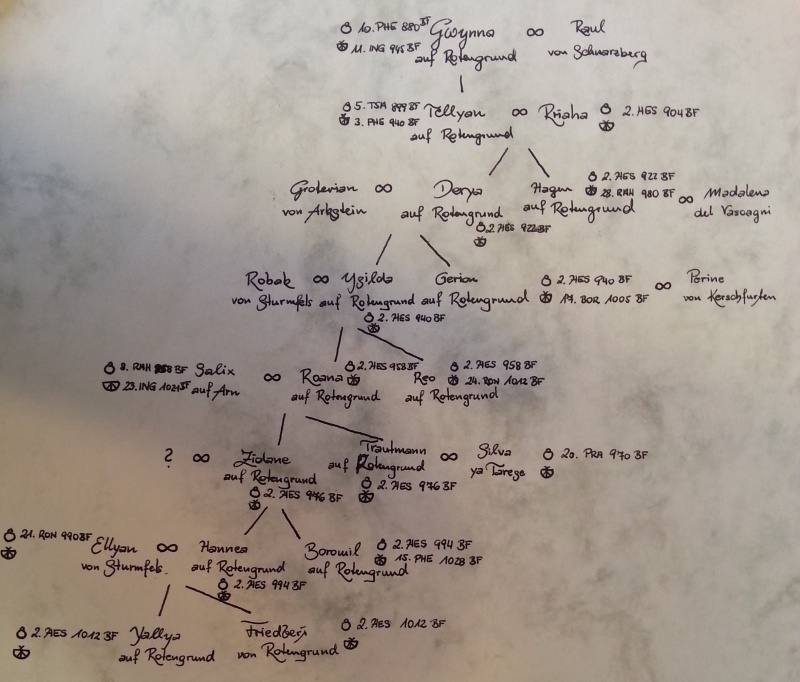 10. PHE 880 BF Gwynna ∞ Raul
11. ING 945 BF auf Rotengrund von Schwarzberg
5. TSA 899 BF Tellyan ∞ Rhaha 2. HES 904 BF
3. PHE 940 BF auf Rotengrund
Groterian ∞ Derya Hagen 2. HES 922 BF ∞ Madalena
von Arbstein auf Rotengrund auf Rotengrund 28. RAH 980 BF del Vascagni
2. HES 922 BF
Robak ∞ Ysilda Gerion 2. HES 940 BF ∞ Perine
von Sturmfels auf Rotengrund auf Rotengrund 17. BOR 1005 BF von Kerschfurten
2. HES 940 BF
8. RAH 958 BF Salix ∞ Roana 2. HES 958 BF Reo 2. HES 958 BF
23. ING 1021 BF auf Arn auf Rotengrund auf Rotengrund 24. RON 1012 BF
? ∞ Zidane Trautmann ∞ Silva 20. PRA 970 BF
auf Rotengrund auf Rotengrund ya Tarege
2. HES 976 BF 2. HES 976 BF
21. RON 990 BF Ellyan ∞ Hannea Boromil 2. HES 994 BF
von Sturmfels auf Rotengrund auf Rotengrund 15. PHE 1028 BF
2. HES 994 BF
2. HES 1012 BF Yallya Friedbert 2. HES 1012 BF
auf Rotengrund von Rotengrund